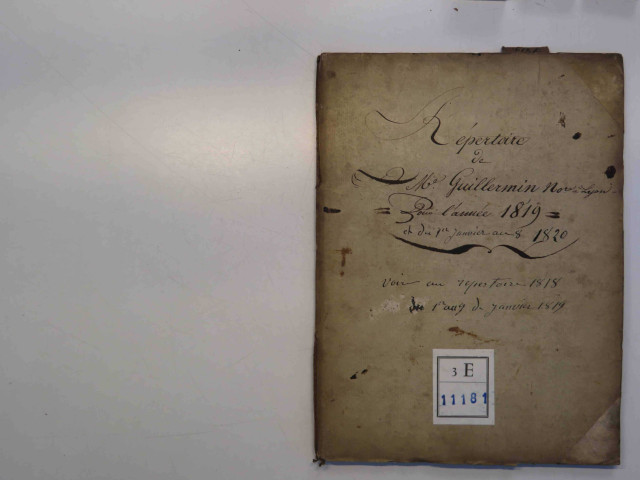 Répertoire
de
Me Guillermin Nore à Lyon
= Pour l'année 1819 =
et du 1er janvier au 8 1820
Voir au repertoire 1818
du 1er au 9 de janvier 1819
3 E
11181